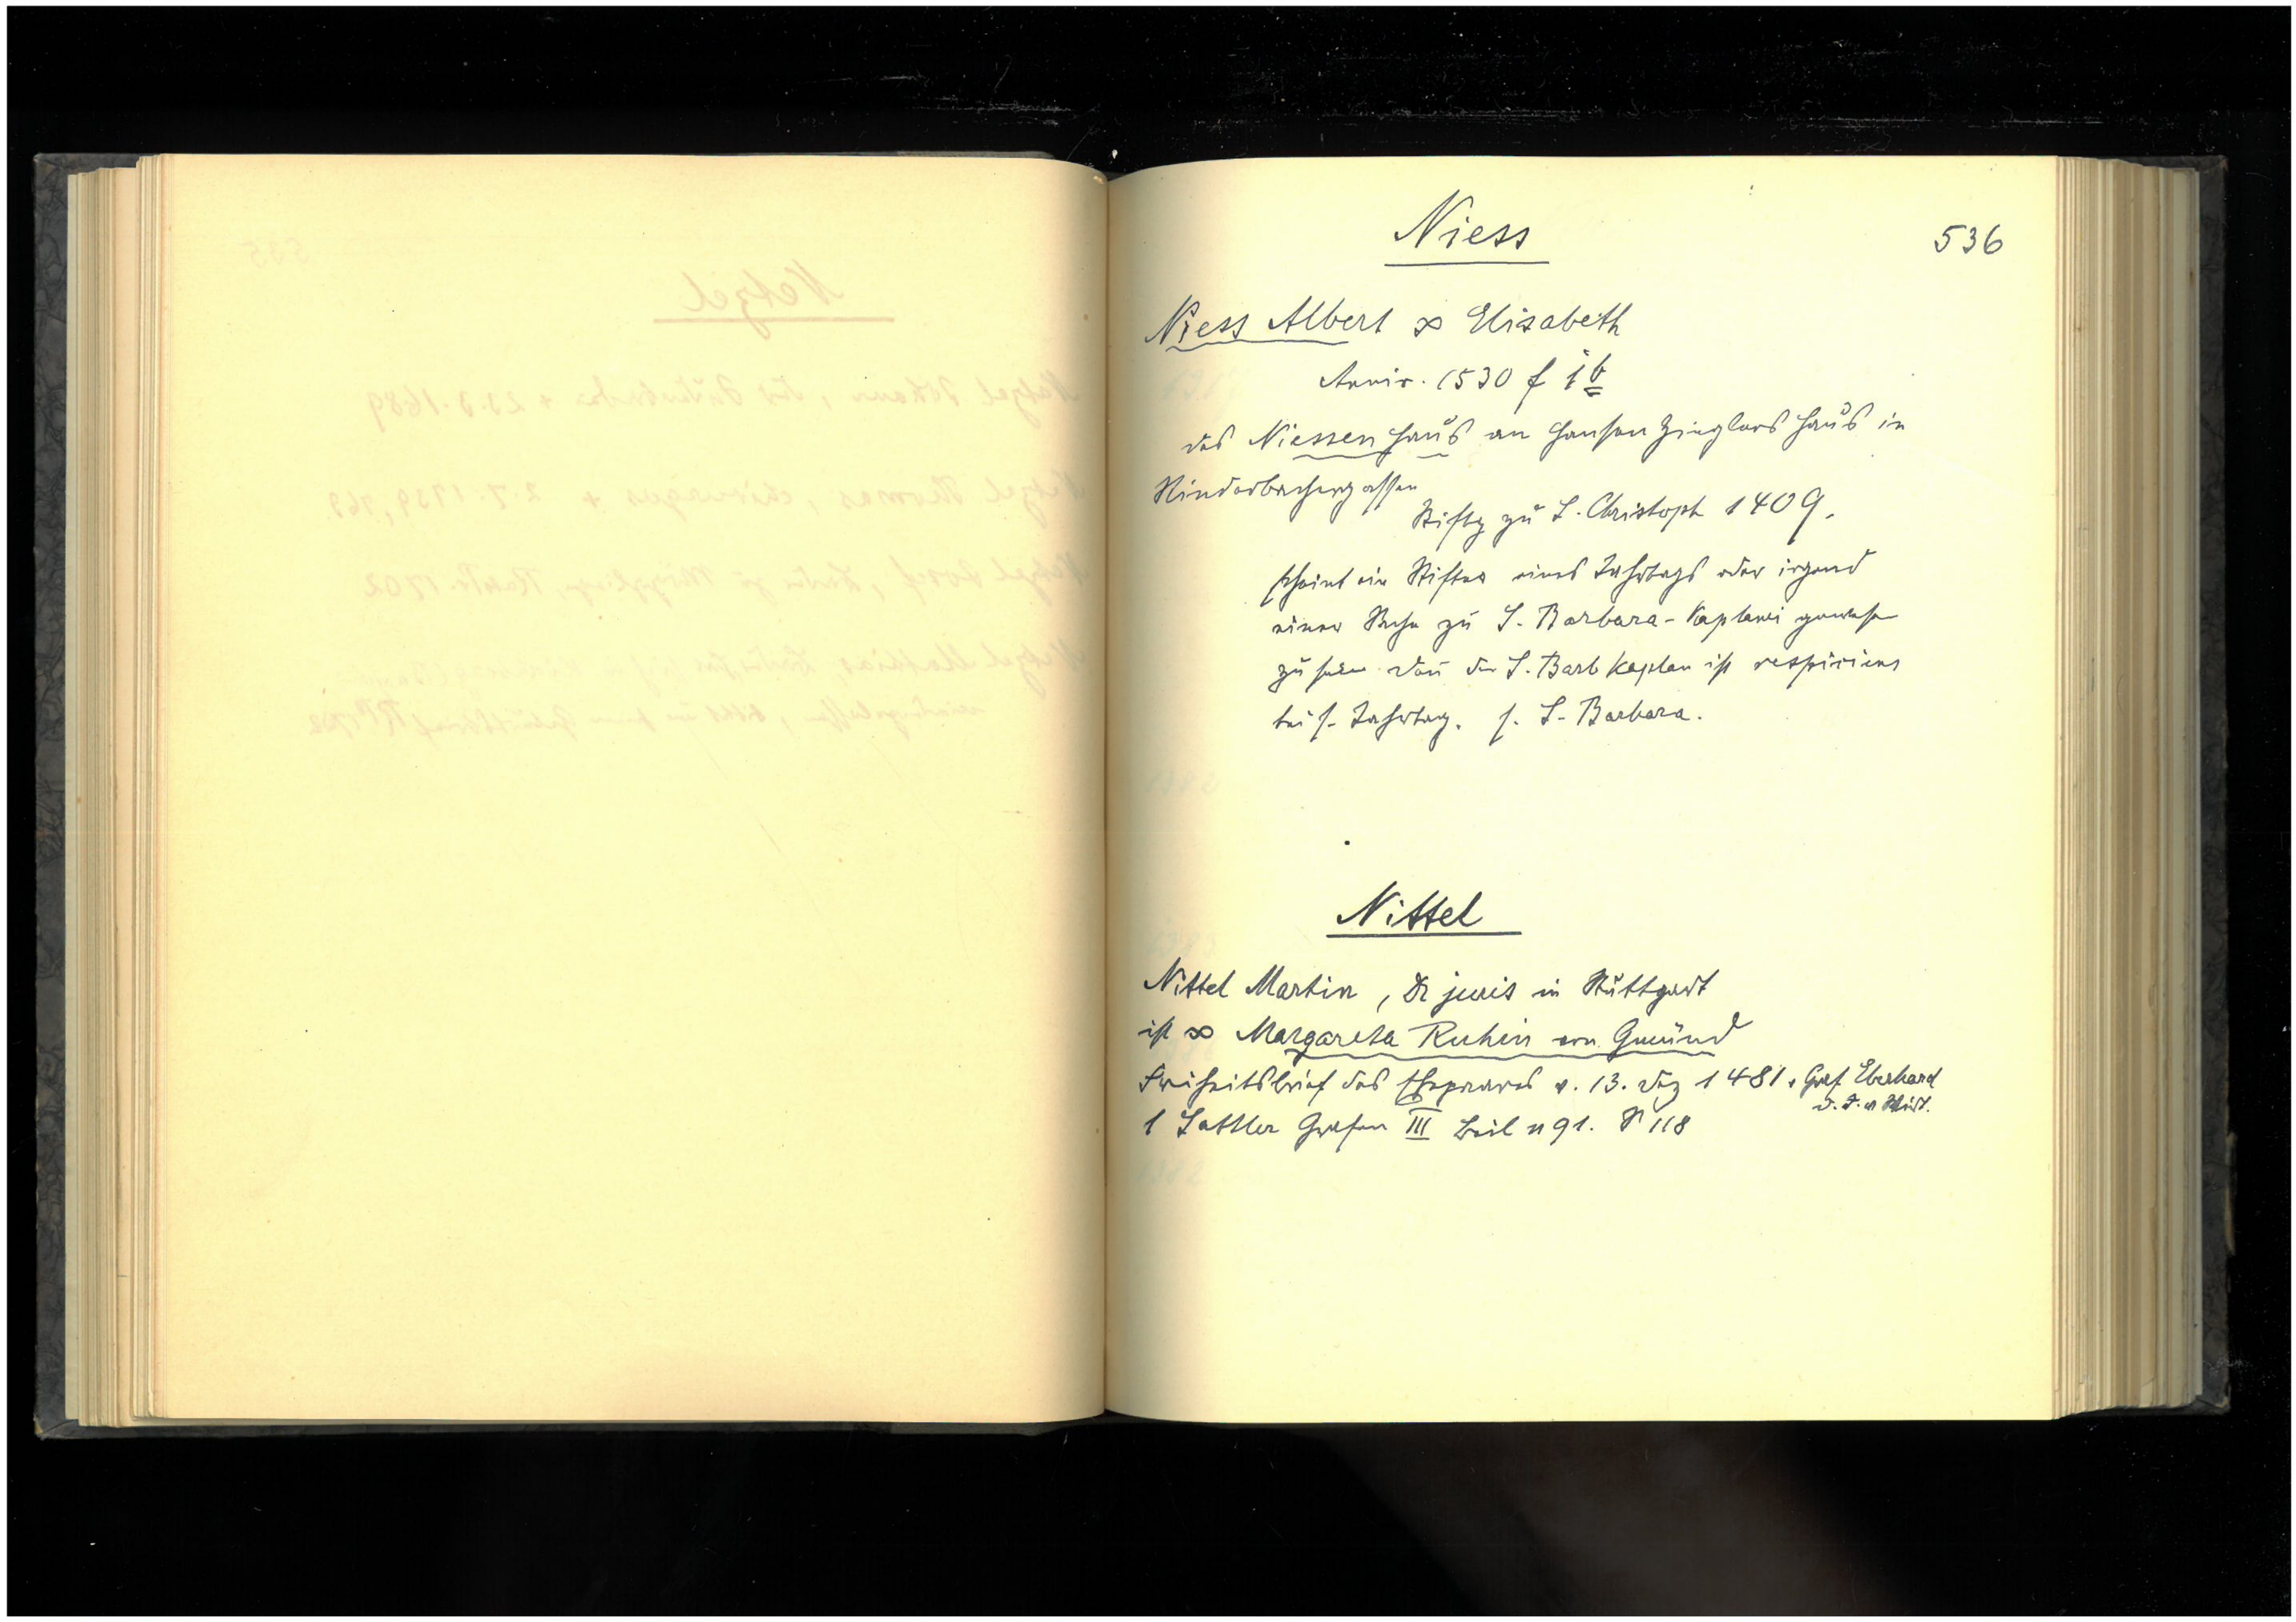 536
Niess
Niess Albert ∞ Elisabeth
Anniv. 1530 f 1 b
das Niessen haus an Hansen Zieglers Haus in
Rinderbachergassen
Stiftg zu S. Christoph 1409.
scheint ein Stifter eines Jahrtags oder irgend
einer Sache zu S. Barbara-Kaplanei gewesen
zu sein. der S. Barb Kaplan ist respiciens
bei s. Jahrtag. s. S. Barbara.
Nittel
Nittel Martin, Dr juris in Stuttgart
ist ∞ Margareta Ruhin von Gmünd
Freiheitsbrief des Ehepaares v. 13. Dez 1481 v Graf Eberhard
d. J. v Wirt.
Sattler Grafen III Beil n 91. S 118